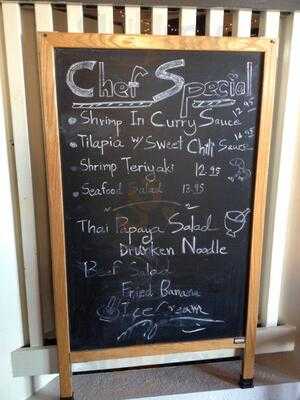 Chef Special
Shrimp In Curry Sauce 12.95
Tilapia w/ Sweet Chili Sauce
Shrimp Teriyaki 12.95
Seafood Salad 13.95
Thai Papaya Salad
Drunken Noodle
Beef Salad
Fried Banana
Ice Cream